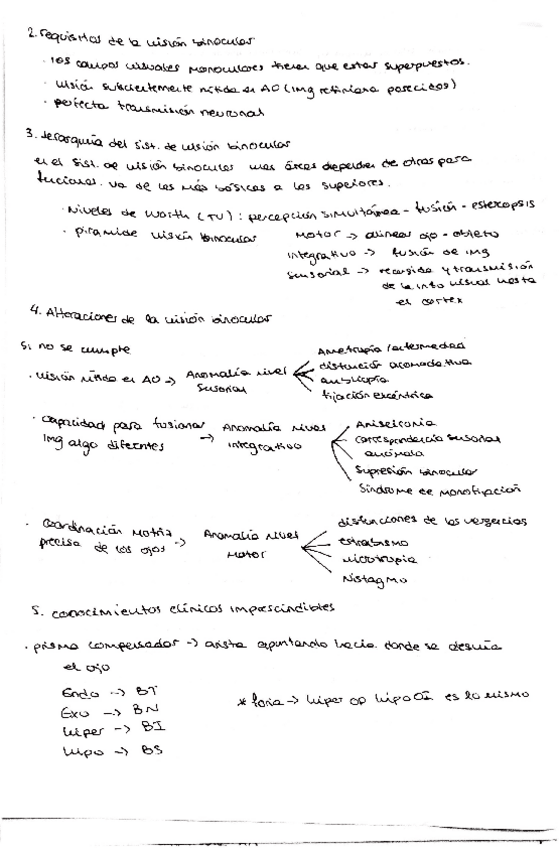 2. requisitos de la visión binocular
· los campos visuales monoculares tienen que estar superpuestos.
· visión suficientemente nítida en AO (img retiniana parecidas)
· perfecta transmisión neuronal
3. Jerarquía del sist. de visión binocular
en el sist. de visión binocular unas áreas dependen de otras para
funcionar. va de las más básicas a las superiores.
· Niveles de Worth (TV) : percepción simultánea - fusión - estereopsis
· pirámide visión binocular
Motor -> alinear ojo - objeto
integrativo -> fusión de img
sensorial -> recogida y transmisión
de la info visual hasta
el cortex
4. Alteraciones de la visión binocular
Si no se cumple
· visión nítida en AO -> Anomalía nivel
sensorial
Ametropía / enfermedad
disfunción acomodativa
ambliopía
fijación excéntrica
· capacidad para fusionar
img algo diferentes
-> Anomalía nivel
integrativo
Aniseiconia
correspondencia sensorial
anómala
Supresión binocular
Síndrome de monofijación
· coordinación motriz
precisa de los ojos ->
Anomalía nivel
motor
disfunciones de las vergencias
estrabismo
microtropia
Nistagmo
5. conocimientos clínicos imprescindibles
· prisma compensador -> arista apuntando hacia donde se desvía
el ojo
Endo -> BT
Exo -> BN
Hiper -> BI
Hipo -> BS
* foria -> hiper OD hipo OI es lo mismo